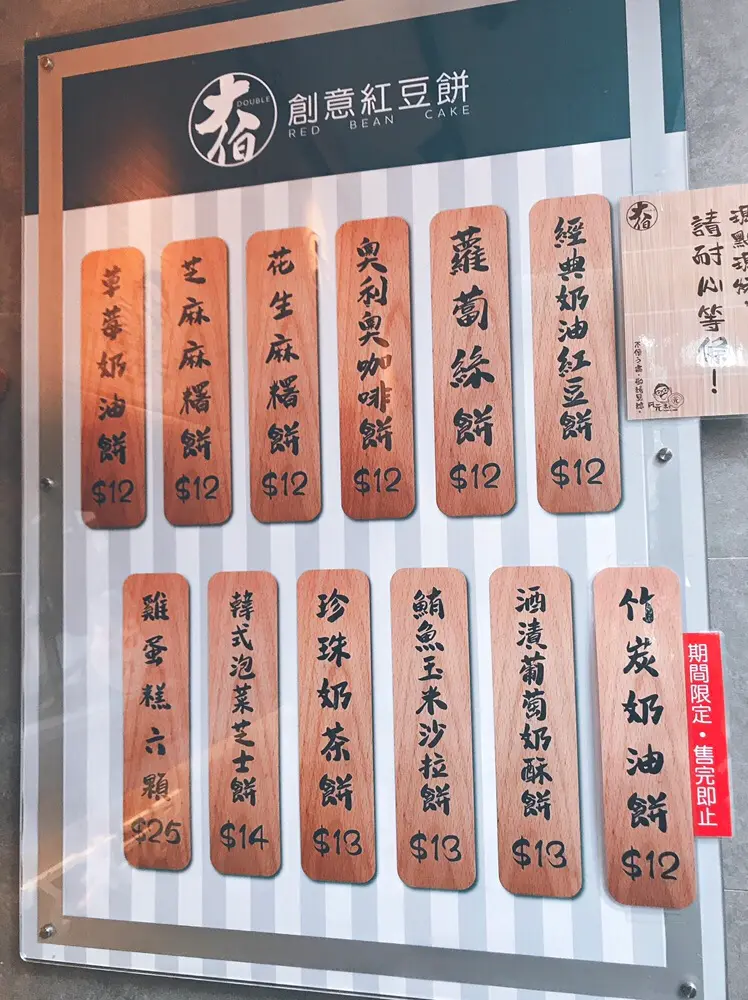 大伯
DOUBLE
創意紅豆餅
RED BEAN CAKE
經典奶油紅豆餅
$12
蘿蔔絲餅
$12
奧利奧咖啡餅
$12
花生麻糬餅
$12
芝麻麻糬餅
$12
草莓奶油餅
$12
竹炭奶油餅
$12
期間限定・售完即止
酒漬葡萄奶酥餅
$13
鮪魚玉米沙拉餅
$13
珍珠奶茶餅
$13
韓式泡菜芝士餅
$14
雞蛋糕六顆
$25
請耐心等候!